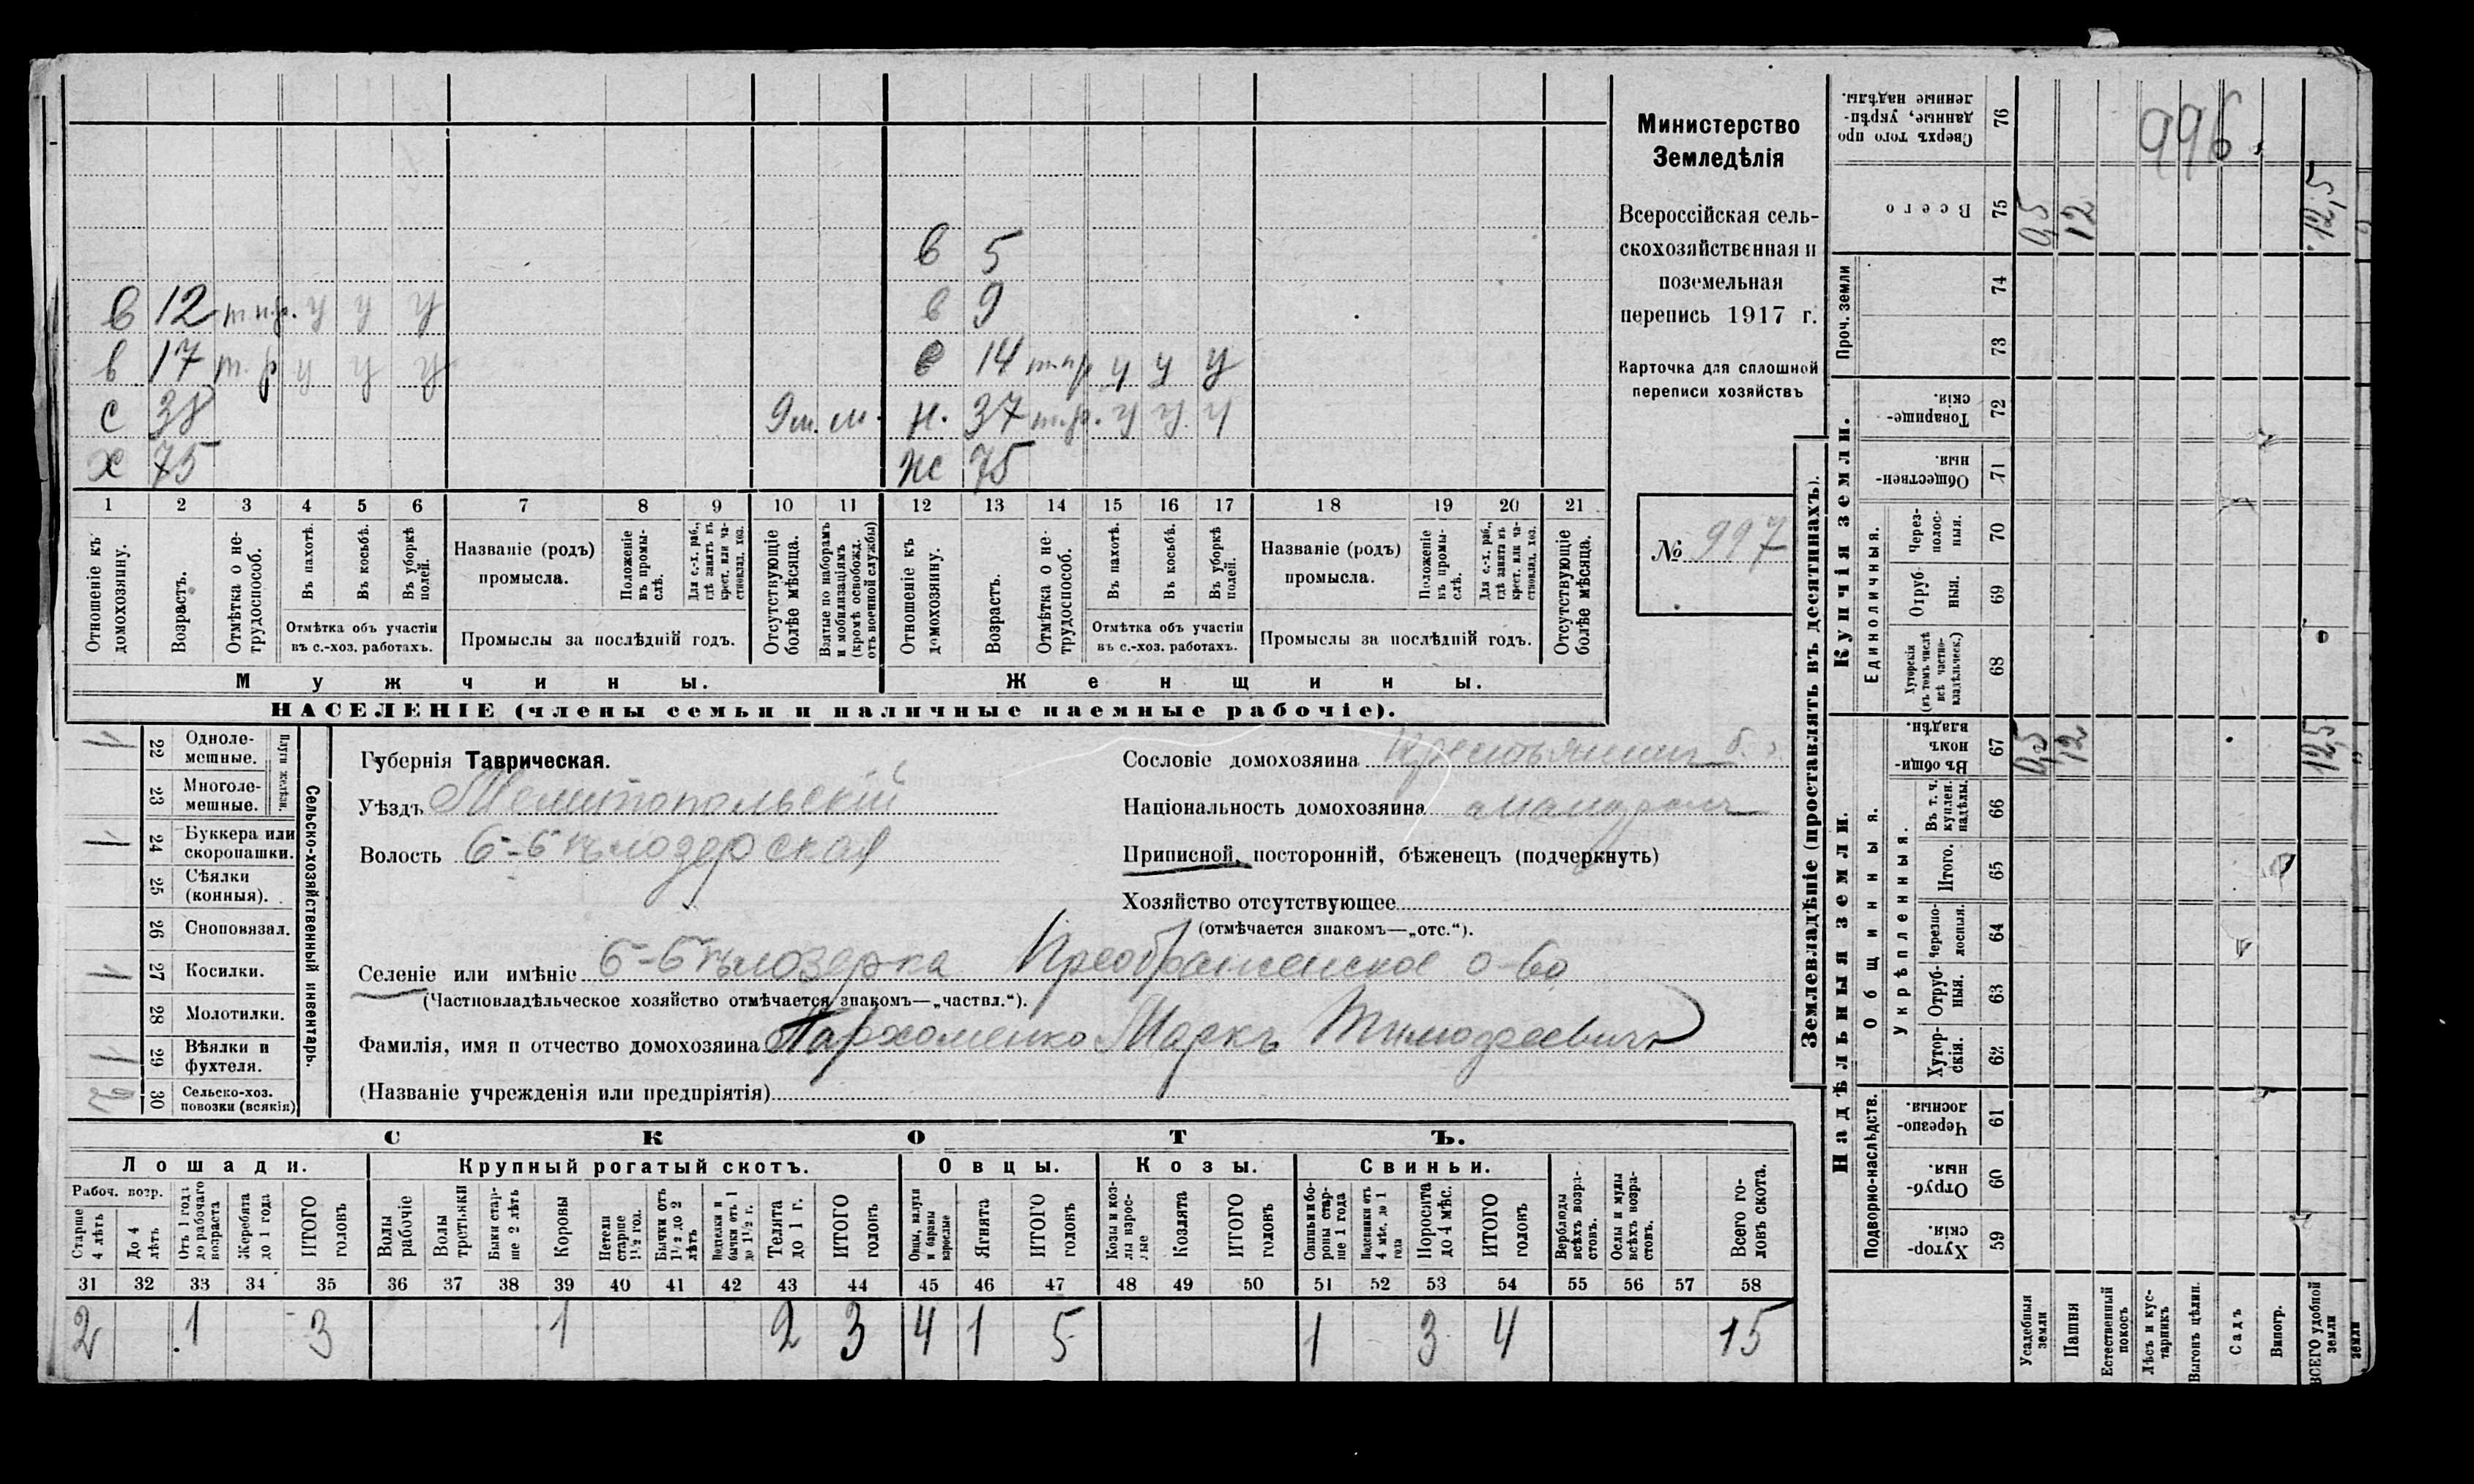 в 5
в 12 т.пр. у у у в 9
в 17 т. р у у у в 14 т.пр у у у
с 38 9 м. м. н. 37 т.р. у у у
х 75 ж 75
1 2 3 4 5 6 7 8 9 10 11 12 13 14 15 16 17 18 19 20 21
Отношеніе къ домохозяину.
Возрастъ.
Отмѣтка о не-трудоспособ.
Въ пахотѣ.
Въ косьбѣ.
Въ уборкѣ полей.
Отмѣтка объ участіи
въ с.-хоз. работахъ.
Названіе (родъ)
промысла.
Положеніе въ промы-слѣ.
Для с.-х. раб., гдѣ занятъ въ крест. или ча-стновлад. хоз.
Промыслы за послѣдній годъ.
Отсутствующіе болѣе мѣсяца.
Взятые по наборамъ и мобилизаціямъ (кромѣ освобожд. отъ военной службы)
Отношеніе къ домохозяину.
Возрастъ.
Отмѣтка о не-трудоспособ.
Въ пахотѣ.
Въ косьбѣ.
Въ уборкѣ полей.
Отмѣтка объ участіи
въ с.-хоз. работахъ.
Названіе (родъ)
промысла.
Положеніе въ промы-слѣ.
Для с.-х. раб., гдѣ занята въ крест. или ча-стновлад. хоз.
Промыслы за послѣдній годъ.
Отсутствующіе болѣе мѣсяца.
Мужчины. Женщины.
НАСЕЛЕНІЕ (члены семьи и наличные наемные рабочіе).
Министерство
Земледѣлія
Всероссійская сель-
скохозяйственная и
поземельная
перепись 1917 г.
Карточка для сплошной
переписи хозяйствъ
№ 997
Сельско-хозяйственный инвентарь.
Плуги желѣзн.
1 22 Одноле-мешные.
23 Многоле-мешные.
1 24 Буккера или скоропашки.
25 Сѣялки (конныя).
26 Сноповязал.
1 27 Косилки.
28 Молотилки.
1 29 Вѣялки и фухтеля.
30 Сельско-хоз. повозки (всякія)
Губернія Таврическая.
Уѣздъ Мелитопольскій
Волость Б-Бѣлозерская
Сословіе домохозяина Крестьянин б.
Національность домохозяина малоросъ
Приписной, посторонній, бѣженецъ (подчеркнуть)
Хозяйство отсутствующее
(отмѣчается знакомъ—„отс.“).
Селеніе или имѣніе Б-Бѣлозерка Преображенское о-во
(Частновладѣльческое хозяйство отмѣчается знакомъ—„частвл.“).
Фамилія, имя и отчество домохозяина Пархоменко Маркъ Тимофеевичъ
(Названіе учрежденія или предпріятія)
СКОТЪ.
Лошади. Крупный рогатый скотъ. Овцы. Козы. Свиньи.
Рабоч. возр.
Старше 4 лѣтъ
До 4 лѣтъ
Отъ 1 года до рабочаго возраста
Жеребята до 1 года
ИТОГО головъ
Волы рабочіе
Волы третьяки
Быки стар-ше 2 лѣтъ
Коровы
Нетели старше 1½ год.
Бычки отъ 1½ до 2 лѣтъ
Подтелки и бычки отъ 1 до 1½ г.
Телята до 1 г.
ИТОГО головъ
Овцы, валухи и бараны взрослые
Ягнята
ИТОГО головъ
Козы и коз-лы взрос-лые
Козлята
ИТОГО головъ
Свиньи и бо-роны стар-ше 1 года
Подсвинки отъ 4 мѣс. до 1 года
Поросята до 4 мѣс.
ИТОГО головъ
Верблюды всѣхъ возра-стовъ.
Ослы и мулы всѣхъ возра-стовъ.
Всего го-ловъ скота.
31 32 33 34 35 36 37 38 39 40 41 42 43 44 45 46 47 48 49 50 51 52 53 54 55 56 57 58
2 1 3 1 2 3 4 1 5 1 3 4 15
Землевладѣніе (проставлять въ десятинахъ).
996
Сверхъ того про-данные, укрѣп-ленные надѣлы. 76
Всего 75 0,5 12 12,5
Проч. земли
74
73
Купчія земли.
Товарище-скія. 72
Обществен-ныя. 71
Единоличныя.
Через-полос-ныя. 70
Отруб-ныя. 69
Хуторскія (въ томъ числѣ всѣ частно-владѣльческ.) 68
Надѣльныя земли.
Общинныя.
Въ общи-номъ владѣн. 67 0,5 12 12,5
Укрѣпленныя.
Въ т. ч. куплен. надѣлы. 66
Итого. 65
Черезпо-лосныя. 64
Отруб-ныя. 63
Хутор-скія. 62
Подворно-наслѣдств.
Черезпо-лосныя. 61
Отруб-ныя. 60
Хутор-скія. 59
Усадебныя земли
Пашня
Естественный покосъ
Лѣсъ и кус-тарникъ
Выгонъ цѣлин.
Садъ
Виногр.
ВСЕГО удобной земли
земли